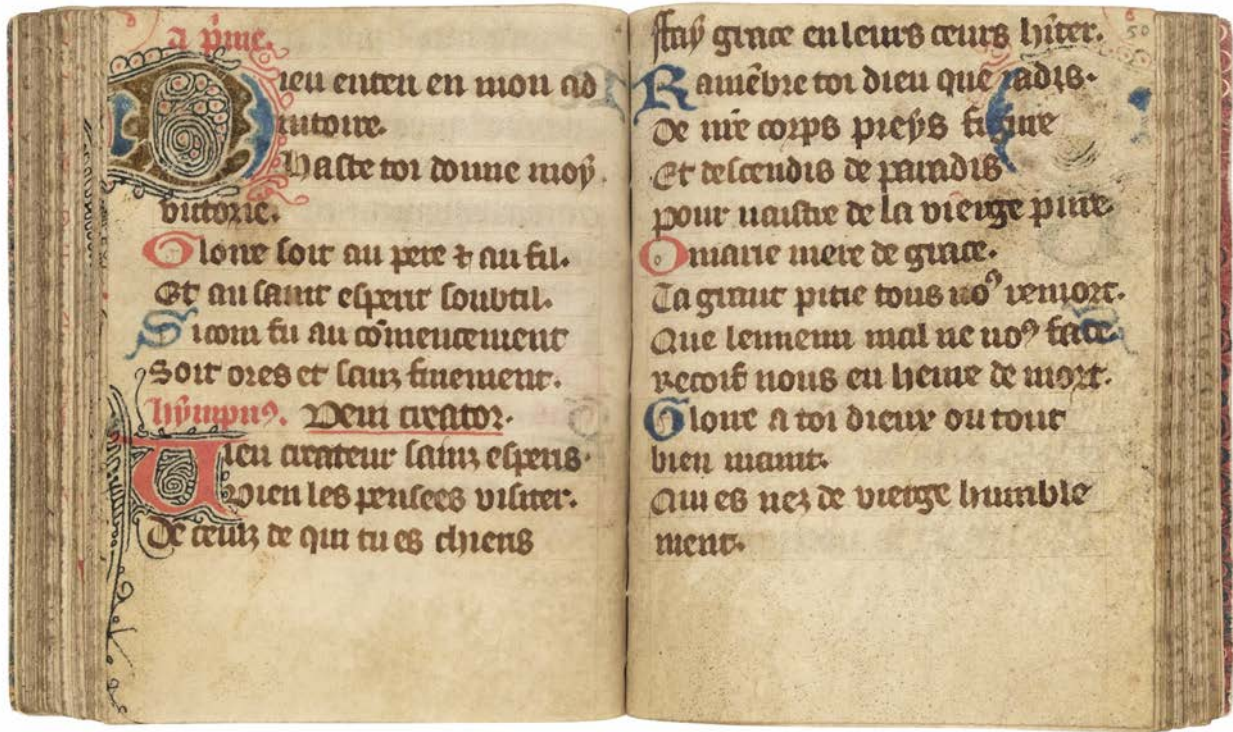 A p̄me.
Dieu enten en mon ad
iutoire.
Haste toi donne moÿ
victorie.
Gloire soit au pere ⁊ au fil.
Et au saint esperit soubtil.
Sicom fu au cōmencement
Soit ores et sanz finement.
hÿmpnꝰ. Veni creator.
Uien createur sains esperis.
Vien les pensees visiter.
De ceulz de qui tu es chiens
fay grace en leurs ceurs
50
Ramēbre toi dieu que iadis.
De nr̄e corps preÿs figure
Et descendis de paradis
pour naistre de la vierge pure.
O marie mere de grace.
Ta grant pitie tous noꝰ remort.
Que lennemi mal ne noꝰ face.
recoif nous en heure de mort.
Gloire a toi dieux ou tout
bien maint.
Qui es nez de vierge humble
ment.